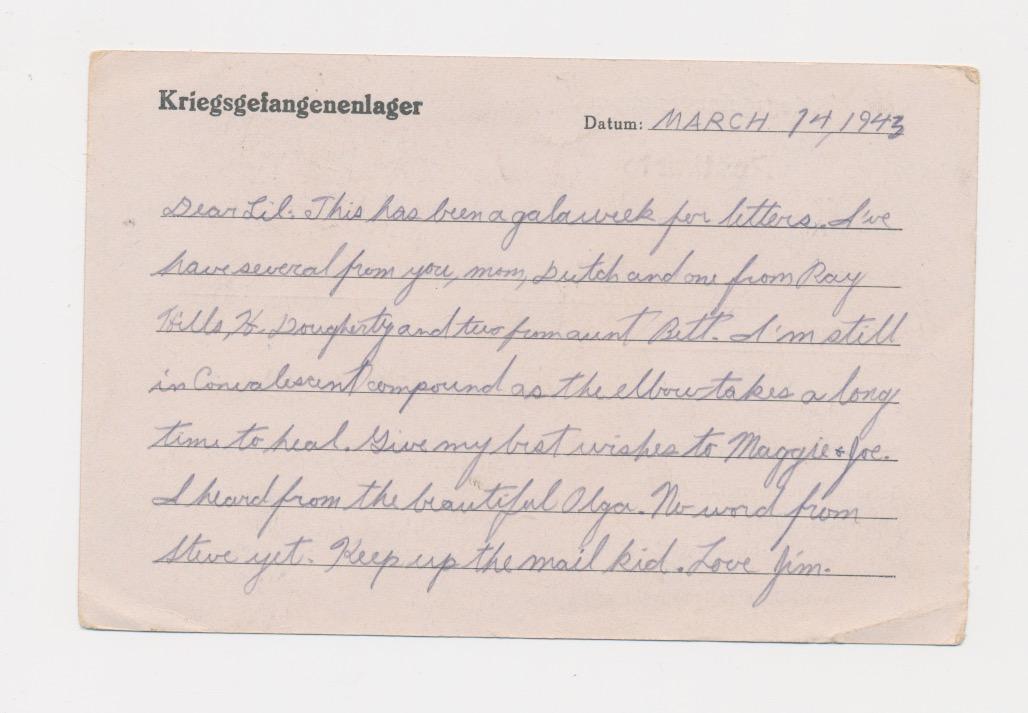 Kriegsgefangenenlager
Datum: MARCH 14, 1943
Dear Lil: This has been a gala week for letters. I've
have several from you, mom, Dutch and one from Ray
Hills, H. Dougherty and two from aunt Bett. I'm still
in Convalescent compound as the elbow takes a long
time to heal. Give my best wishes to Maggie & Joe.
I heard from the beautiful Olga. No word from
Steve yet. Keep up the mail kid. Love Jim.